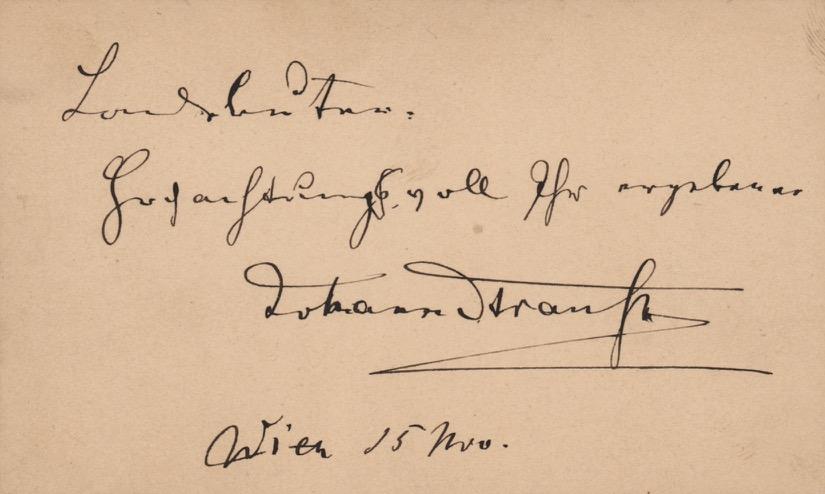 Hochachtungsvoll Ihr ergebener
Johann Strauß
Wien 15 Nov.